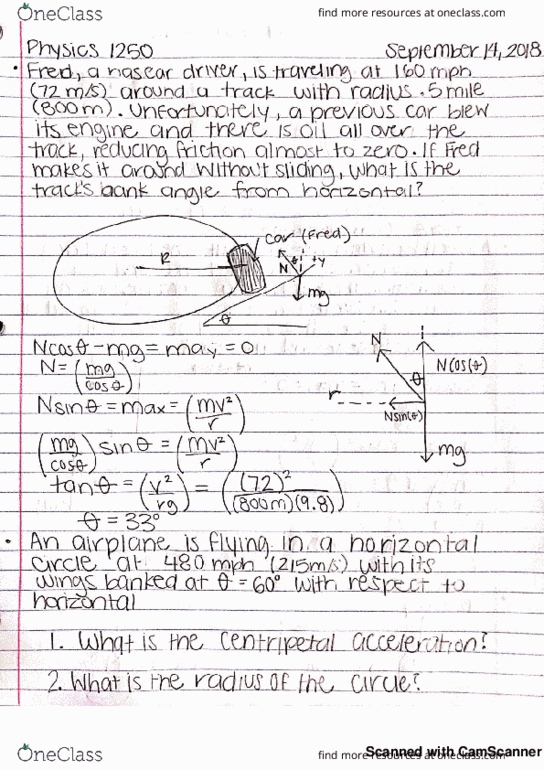 OneClass
find more resources at oneclass.com
Physics 1250 September 14, 2018
• Fred, a nascar driver, is traveling at 160 mph
(72 m/s) around a track with radius .5 mile
(800m). Unfortunately, a previous car blew
its engine and there is oil all over the
track, reducing friction almost to zero. If Fred
makes it around without sliding, what is the
track's bank angle from horizontal?
Car (Fred)
R
N θ +y
mg
θ
Ncosθ - mg = may = 0
N = (mg/cosθ)
Nsinθ = max = (mv²/r)
(mg/cosθ) sinθ = (mv²/r)
tanθ = (v²/rg) = ((72)²/(800m)(9.8))
θ = 33°
N
N cos(θ)
θ
r
Nsin(θ)
mg
• An airplane is flying in a horizontal
circle at 480 mph (215m/s) with its
wings banked at θ = 60° with respect to
horizontal
1. What is the centripetal acceleration?
2. What is the radius of the circle?
OneClass
find more resources at oneclass.com
Scanned with CamScanner